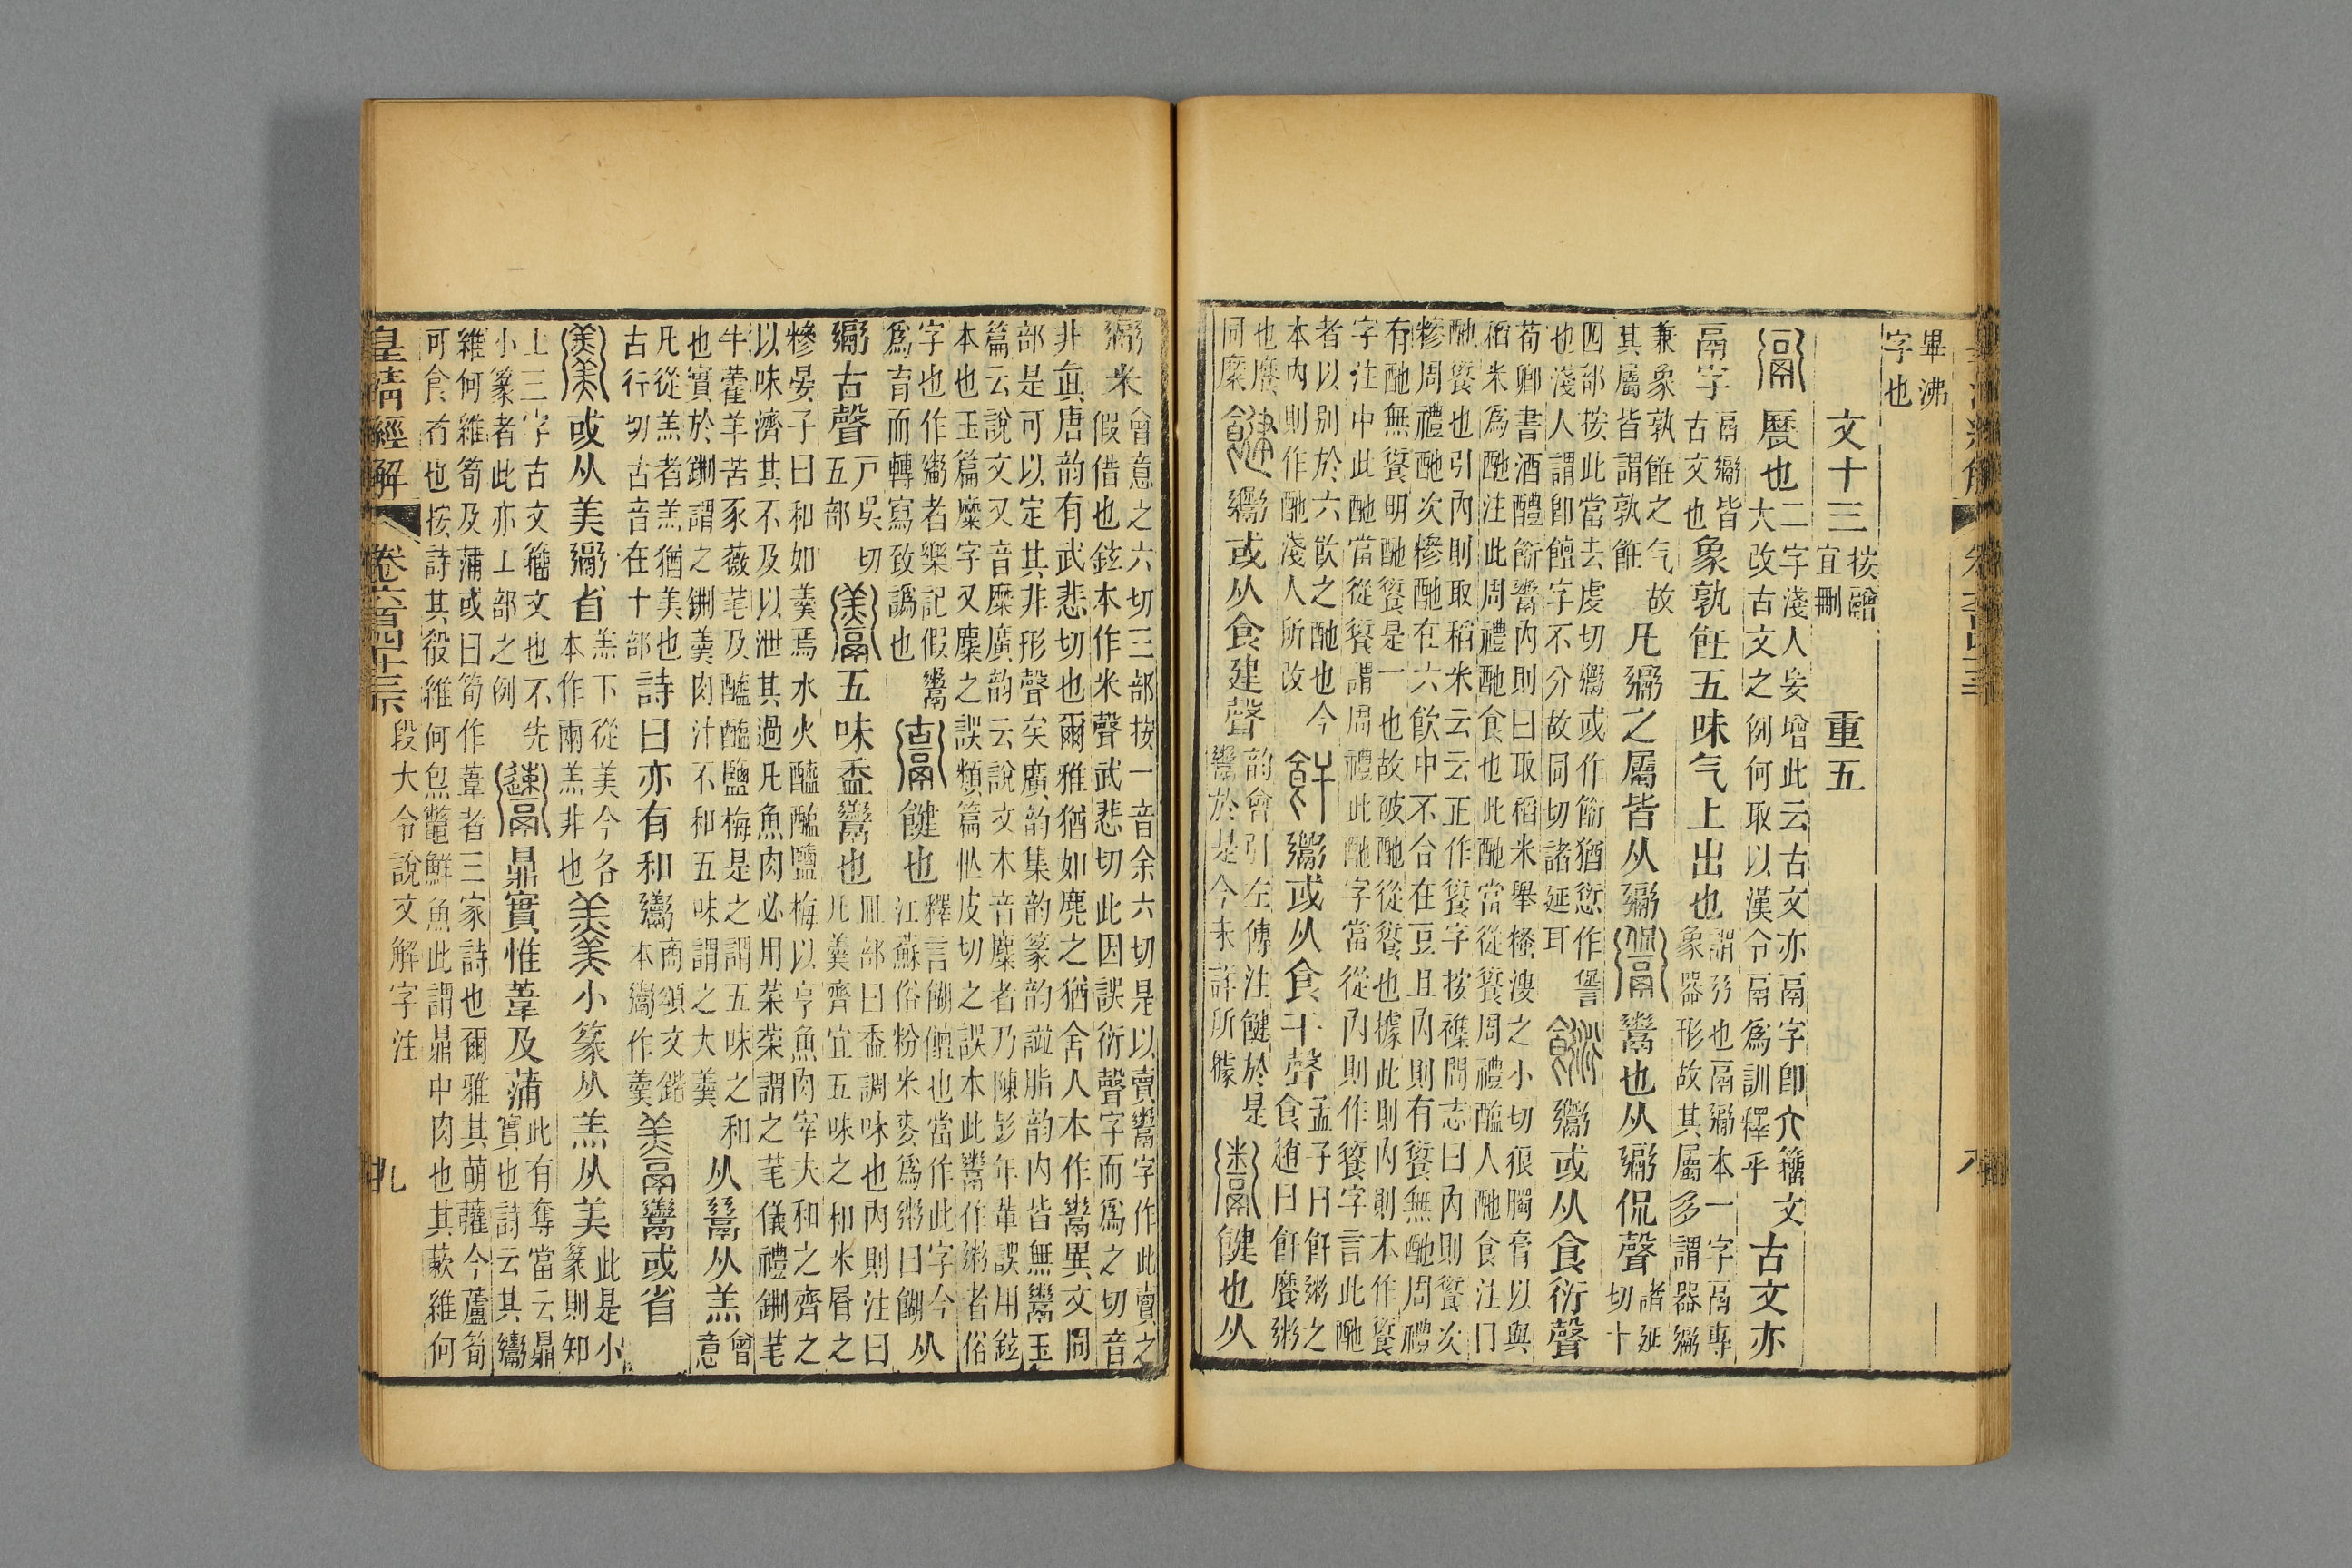 畢沸字也
文十三 按䰝宜刪 重五
䰜 㽁也 二字淺人妄增此云古文亦鬲字卽介籒文大改古文之例何取以漢令鬲爲訓釋乎 古文亦
鬲字 鬲䰜皆古文也 象孰飪五味气上出也 謂䰜也鬲䰜本一字鬲專象器形故其屬多謂器䰜
兼象孰飪之气故其屬皆謂孰飪 凡䰜之屬皆从䰜 鬻也从䰜侃聲 諸延切十
四部按此當去虔切或作餰猶愆作諐也淺人謂卽饘字不分故同切諸延耳 或从食衍聲
荀卿書酒醴餰鬻內則曰取稻米舉糔溲之小切狼臅膏以與稻米爲酏注此周禮酏食也此酏當從餰周禮醢人酏食注曰
酏餰也引內則取稻米云云正作餰字按襍問志曰內則餰次糝周禮酏次糝酏在六飮中不合在豆且內則有餰無酏周禮
有酏無餰明酏餰是一也故破酏從餰也據此則內則本作餰字注中此酏當從餰謂周禮此酏字當從內則作餰字言此酏
者以別於六飮之酏也今本內則作酏淺人所改 或从食干聲 孟子曰飦粥之食趙曰飦糜粥
也糜同 或从食建聲 韵會引左傳注䭈於是鬻於是今未詳所據 䭈也从
䰜米 會意之六切三部按一音余六切是以賣鬻字作此賣之假借也鉉本作米聲武悲切此因誤衍聲字而爲之切音
非眞唐韵有武悲切也爾雅猶如麂之猶舍人本作鬻異文同部是可以定其非形聲矣廣韵集韵篆韵諡脂韵内皆無鬻玉
篇云說文又音糜廣韵云說文本音麋者乃陳彭年輩誤用鉉本也玉篇糜字又麋之誤類篇忙皮切之誤本此鬻作粥者俗
字也作者樂記假鬻爲育而轉寫致譌也 䭈也 釋言餬饘也當作此字今江蘇俗粉米麥爲粥曰餬 从
䰜古聲 戸吳切五部 五味盉鬻也 皿部曰盉調味也內則注曰凡羹齊宜五味之和米屑之
糝晏子曰和如羹焉水火醯醢鹽梅以亨魚肉宰夫和之齊之以味濟其不及以泄其過凡魚肉必用菜菜謂之芼儀禮鉶芼
牛藿羊苦豕薇芼及醯醢鹽梅是之謂五味之和也實於鉶謂之鉶羹肉汁不和五味謂之大羹 从䰜从羔 會意
凡從羔者羔猶美也古行切古音在十部 詩曰亦有和 商頌文鍇本作羹 或省
或从美䰜省 羔下從美今各本作兩羔非也 羹 小篆从羔从美 此是小篆則知
上三字古文籒文也不先小篆者此亦上部之例 鼎實惟葦及蒲 此有奪當云鼎實也詩云其
維何維筍及蒲或曰筍作葦者三家詩也爾雅其萌虇今蘆筍可食者也按詩其殽維何炰鼈鮮魚此謂鼎中肉也其蔌維何
皇清經解 卷六百四十三 段大令說文解字注 九